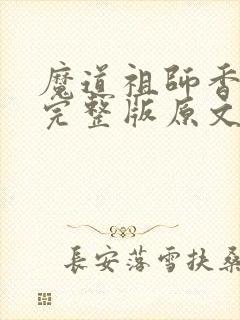 魔道祖師香
完整版原文
長安落雪扶桑